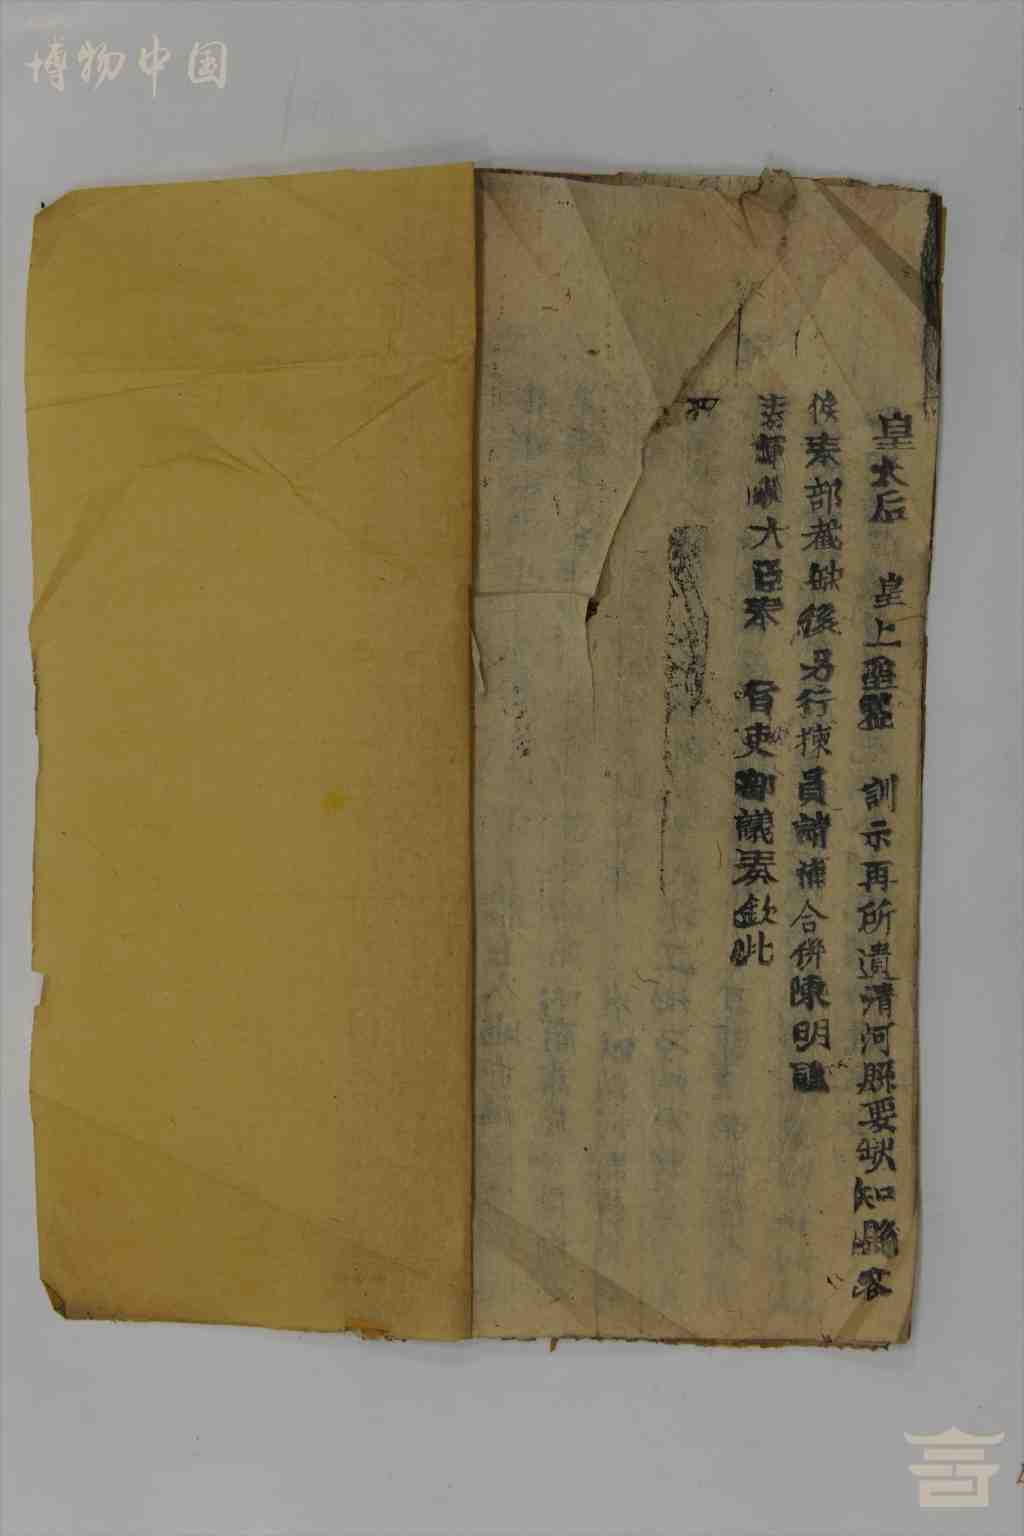 博物中国
皇太后 皇上聖鑒 訓示再所遺清河縣要缺知縣容
俟奏部截缺後另行揀員請補合併陳明謹
奏軍機大臣奉 旨吏部議奏欽此
四